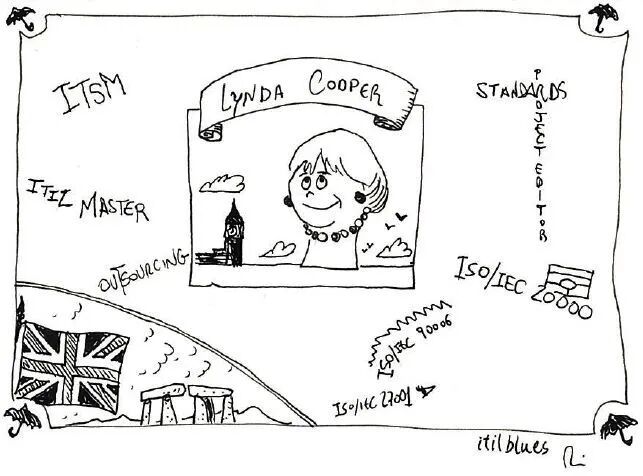 ITSM
LYNDA COOPER
STANDARDS
PROJECT EDITOR
ITIL MASTER
OUTSOURCING
ISO/IEC 20000
ISO/IEC 90006
ISO/IEC 27001
itilblues